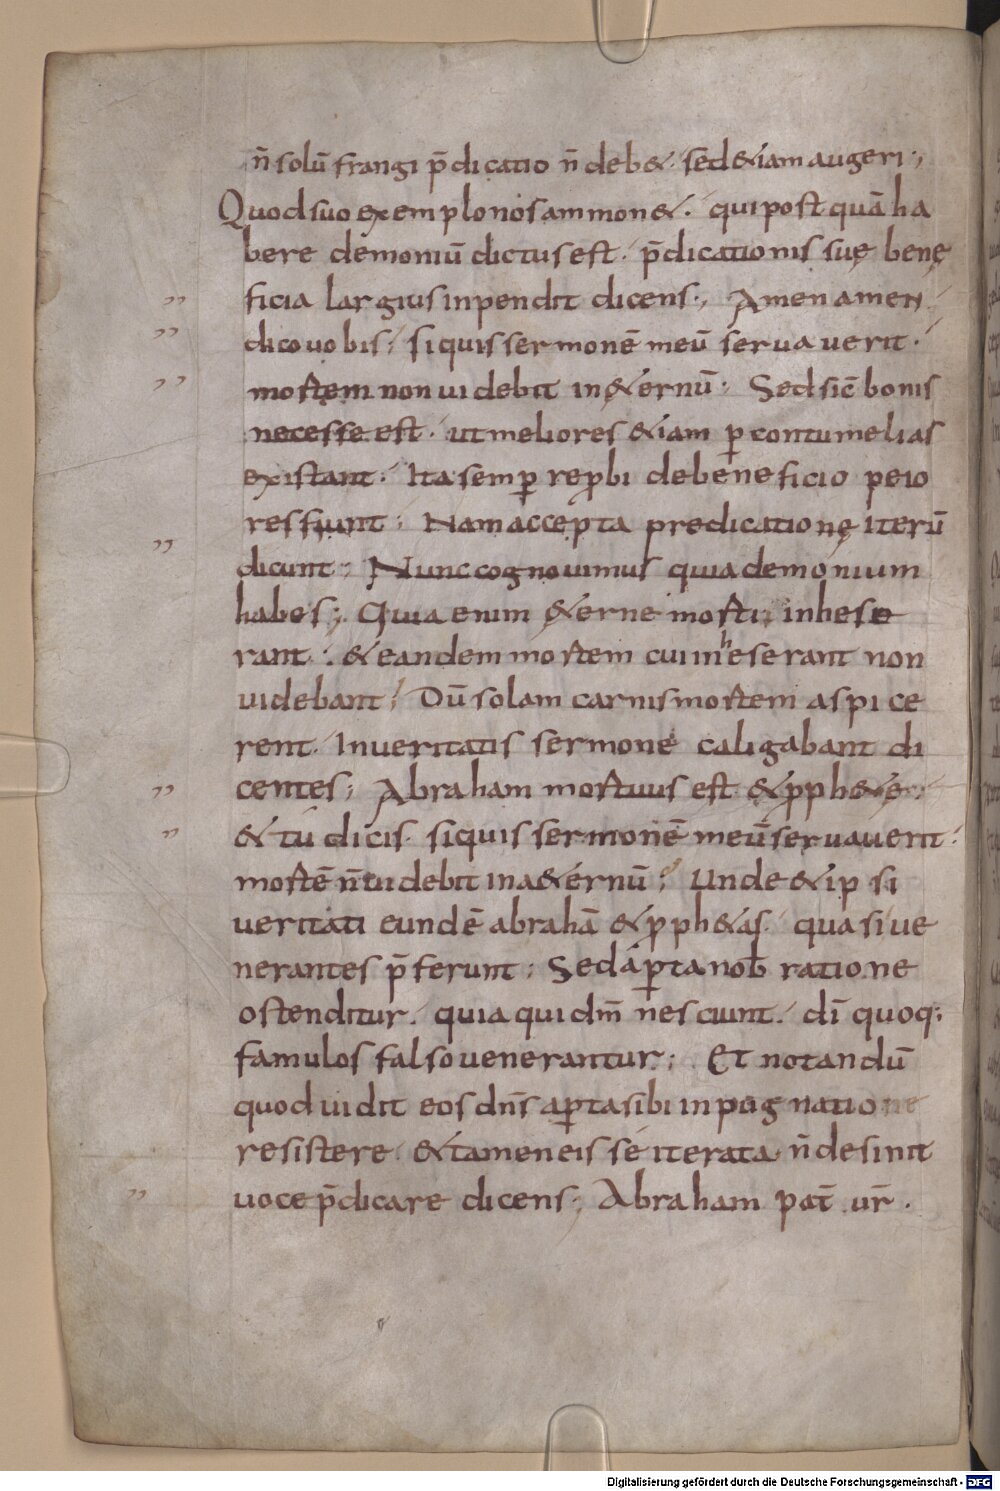 n̄ solū frangi p̄dicatio n̄ deb&. sed &iam augeri;,
Quod suo exemplo nos ammon&. qui post quā ha
bere demoniū dictus est. p̄dicationis suę benę
ficia largius inpendit dicens;, Amen amen
dico uobis; si quis sermonē meū seruauerit.
mortem non uidebit in &ernū; Sed sic̄ bonis
necesse est. ut meliores &iam ꝑ contumelias
existant. Ita semꝑ reꝓbi de beneficio peio
res fiunt; Nam accepta predicationę iterū
dicunt; Nunc cognouimus quia demonium
habes;, Quia enim &erne morti inhese
rant. & eandem mortem cui inheserant non
uidebant; Dū solam carnis mortem aspice
rent. In ueritatis sermone caligabant di
centes; Abraham mortuus est & ꝓph&ę;
& tu dicis. si quis sermonē meū seruauerit.
mortē n̄ uidebit in a&ernū; Unde & ipsi
ueritati eundē abrahā & ꝓph&as. quasi ue
nerantes p̄ferunt; Sed aꝑta nob̄ ratione
ostenditur. quia qui dm̄ nesciunt. dī quoq;
famulos falso uenerantur; Et notandū
quod uidit eos dn̄s aꝑta sibi inpugnatione
resistere & tamen eis se iterata n̄ desinit
uoce p̄dicare dicens; Abraham pat̄ ur̄.
Digitalisierung gefördert durch die Deutsche Forschungsgemeinschaft - DFG